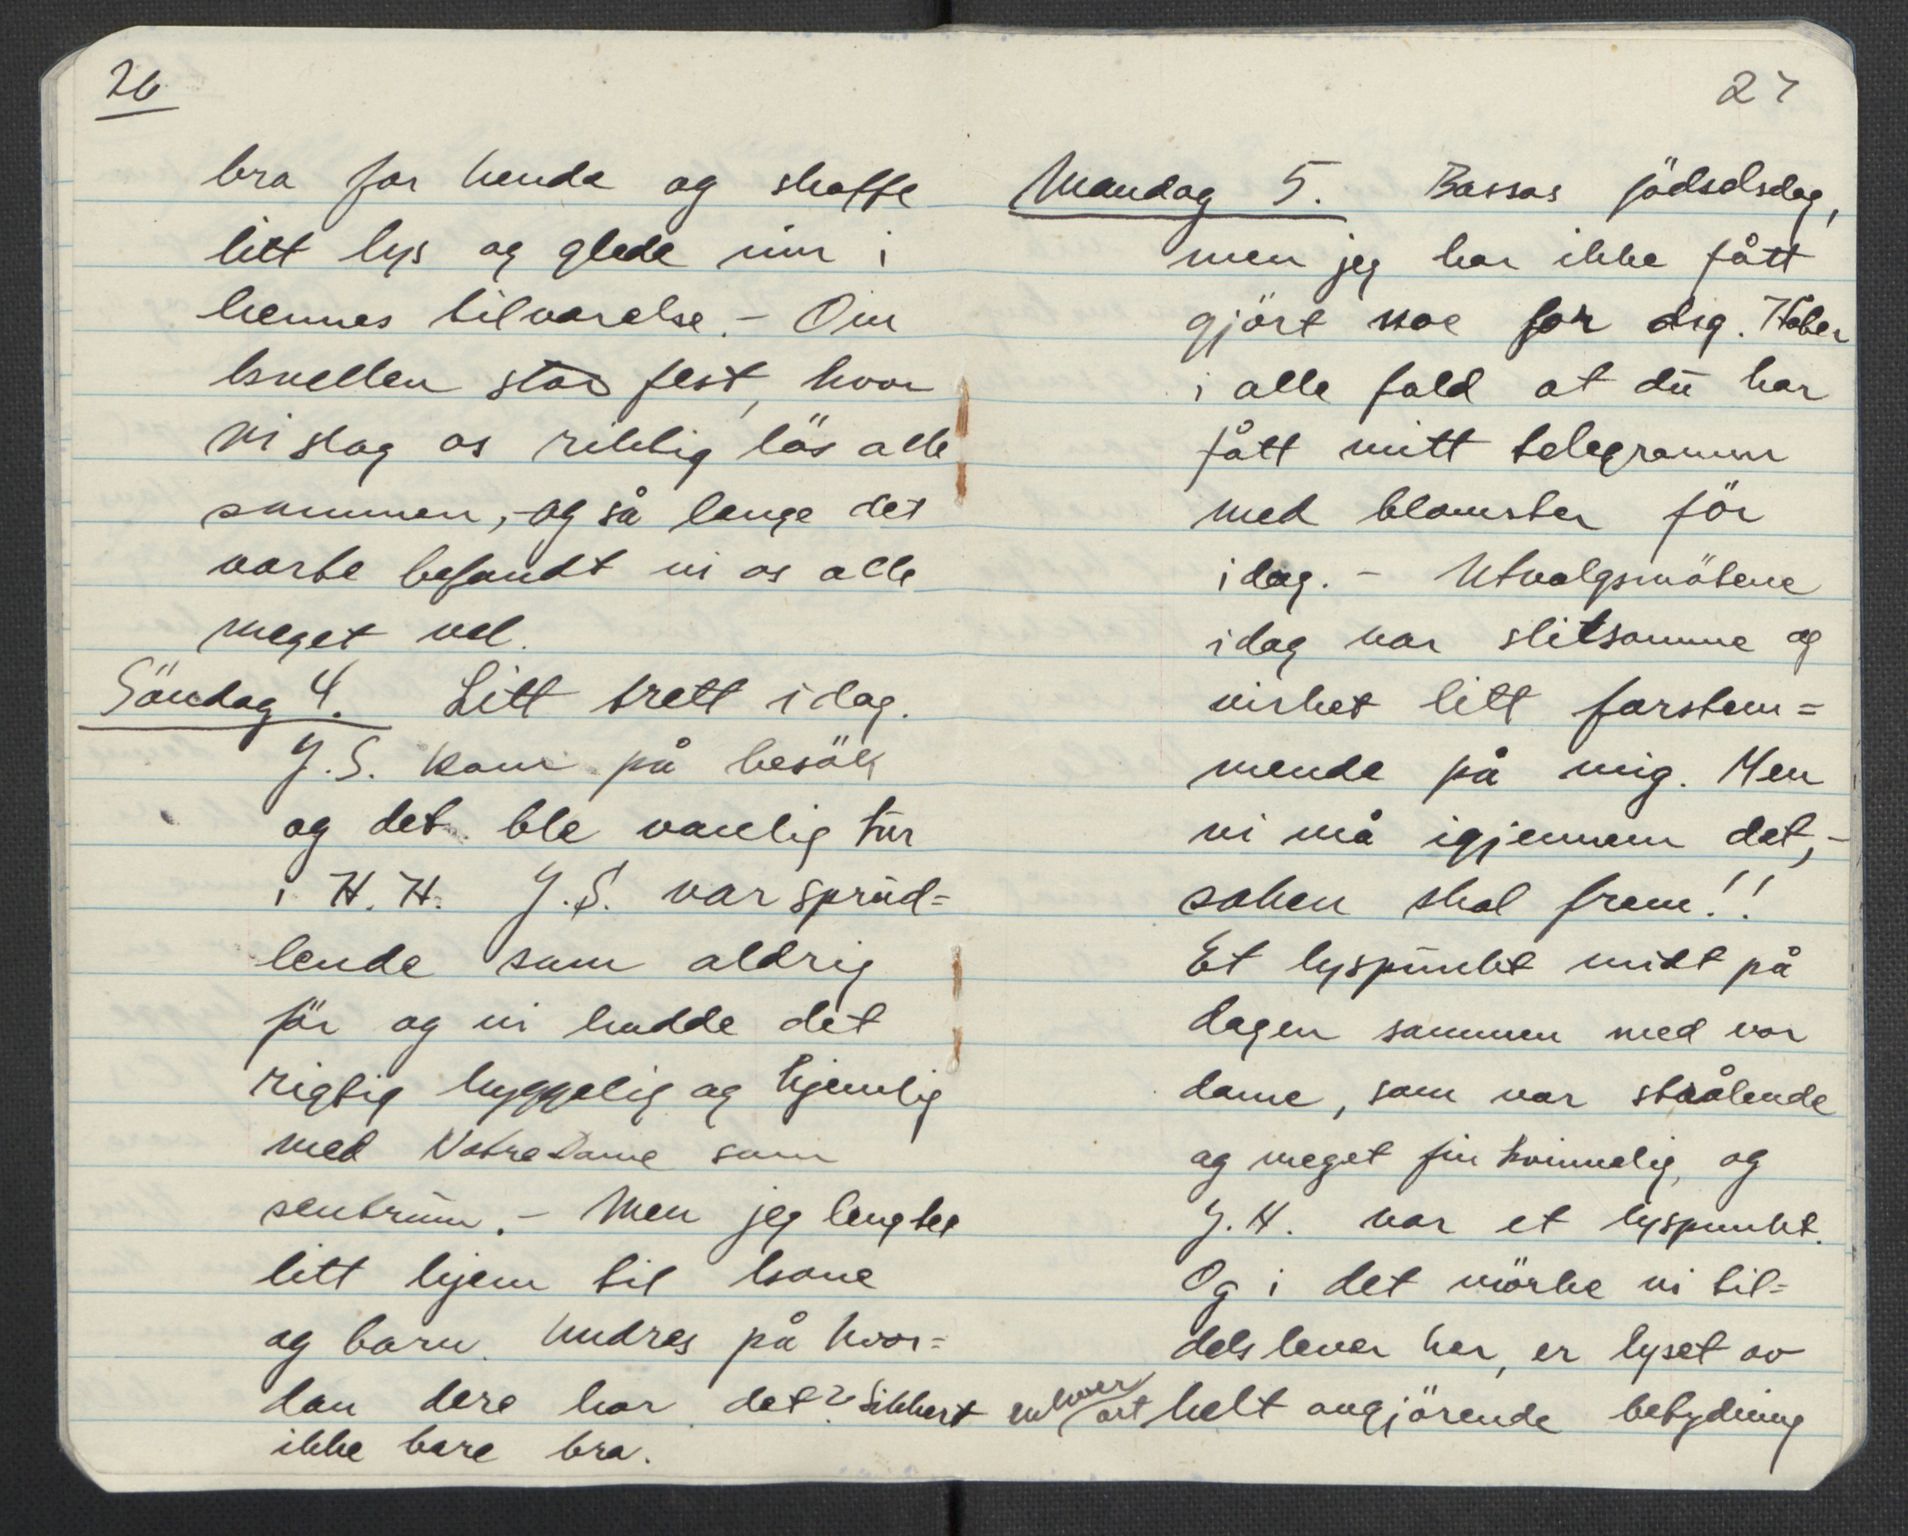 26
bra for hende og skaffe
litt lys og glede inn i
hennes tilvarelse. - Om
kvellen stor fest, hvor
vi slog os riktig lös alle
sammen, - og så lenge det
varte befandt vi os alle
meget vel.
Söndag 4. Litt trett idag.
J.S. kom på besök
og det ble vanlig tur
i H.H. J.S. var sprud=
lende som aldrig
för og vi hadde det
rigtig hyggelig og hjemlig
med Notre Dame som
sentrum. - Men jeg lengtet
litt hjem til kone
og barn. Undres på hvor=
dan dere har det? Sikkert
ikke bare bra.
27
Mandag 5. Bassas födselsdag,
men jeg har ikke fått
gjört noe for dig. Håber
i alle fald at du har
fått mitt telegramm
med blomster för
idag. - Utvalgsmötene
idag var slitsomme og
virket litt forstem=
mende på mig. Men
vi må igjennem det, -
saken skal frem!!
Et lyspunkt midt på
dagen sammen med vor
dame, som var strålende
og meget fin kvinnelig, og
J.H. var et lyspunkt.
Og i det mörke vi til=
dels lever her, er lyset av
enhver art helt avgjörende betydning